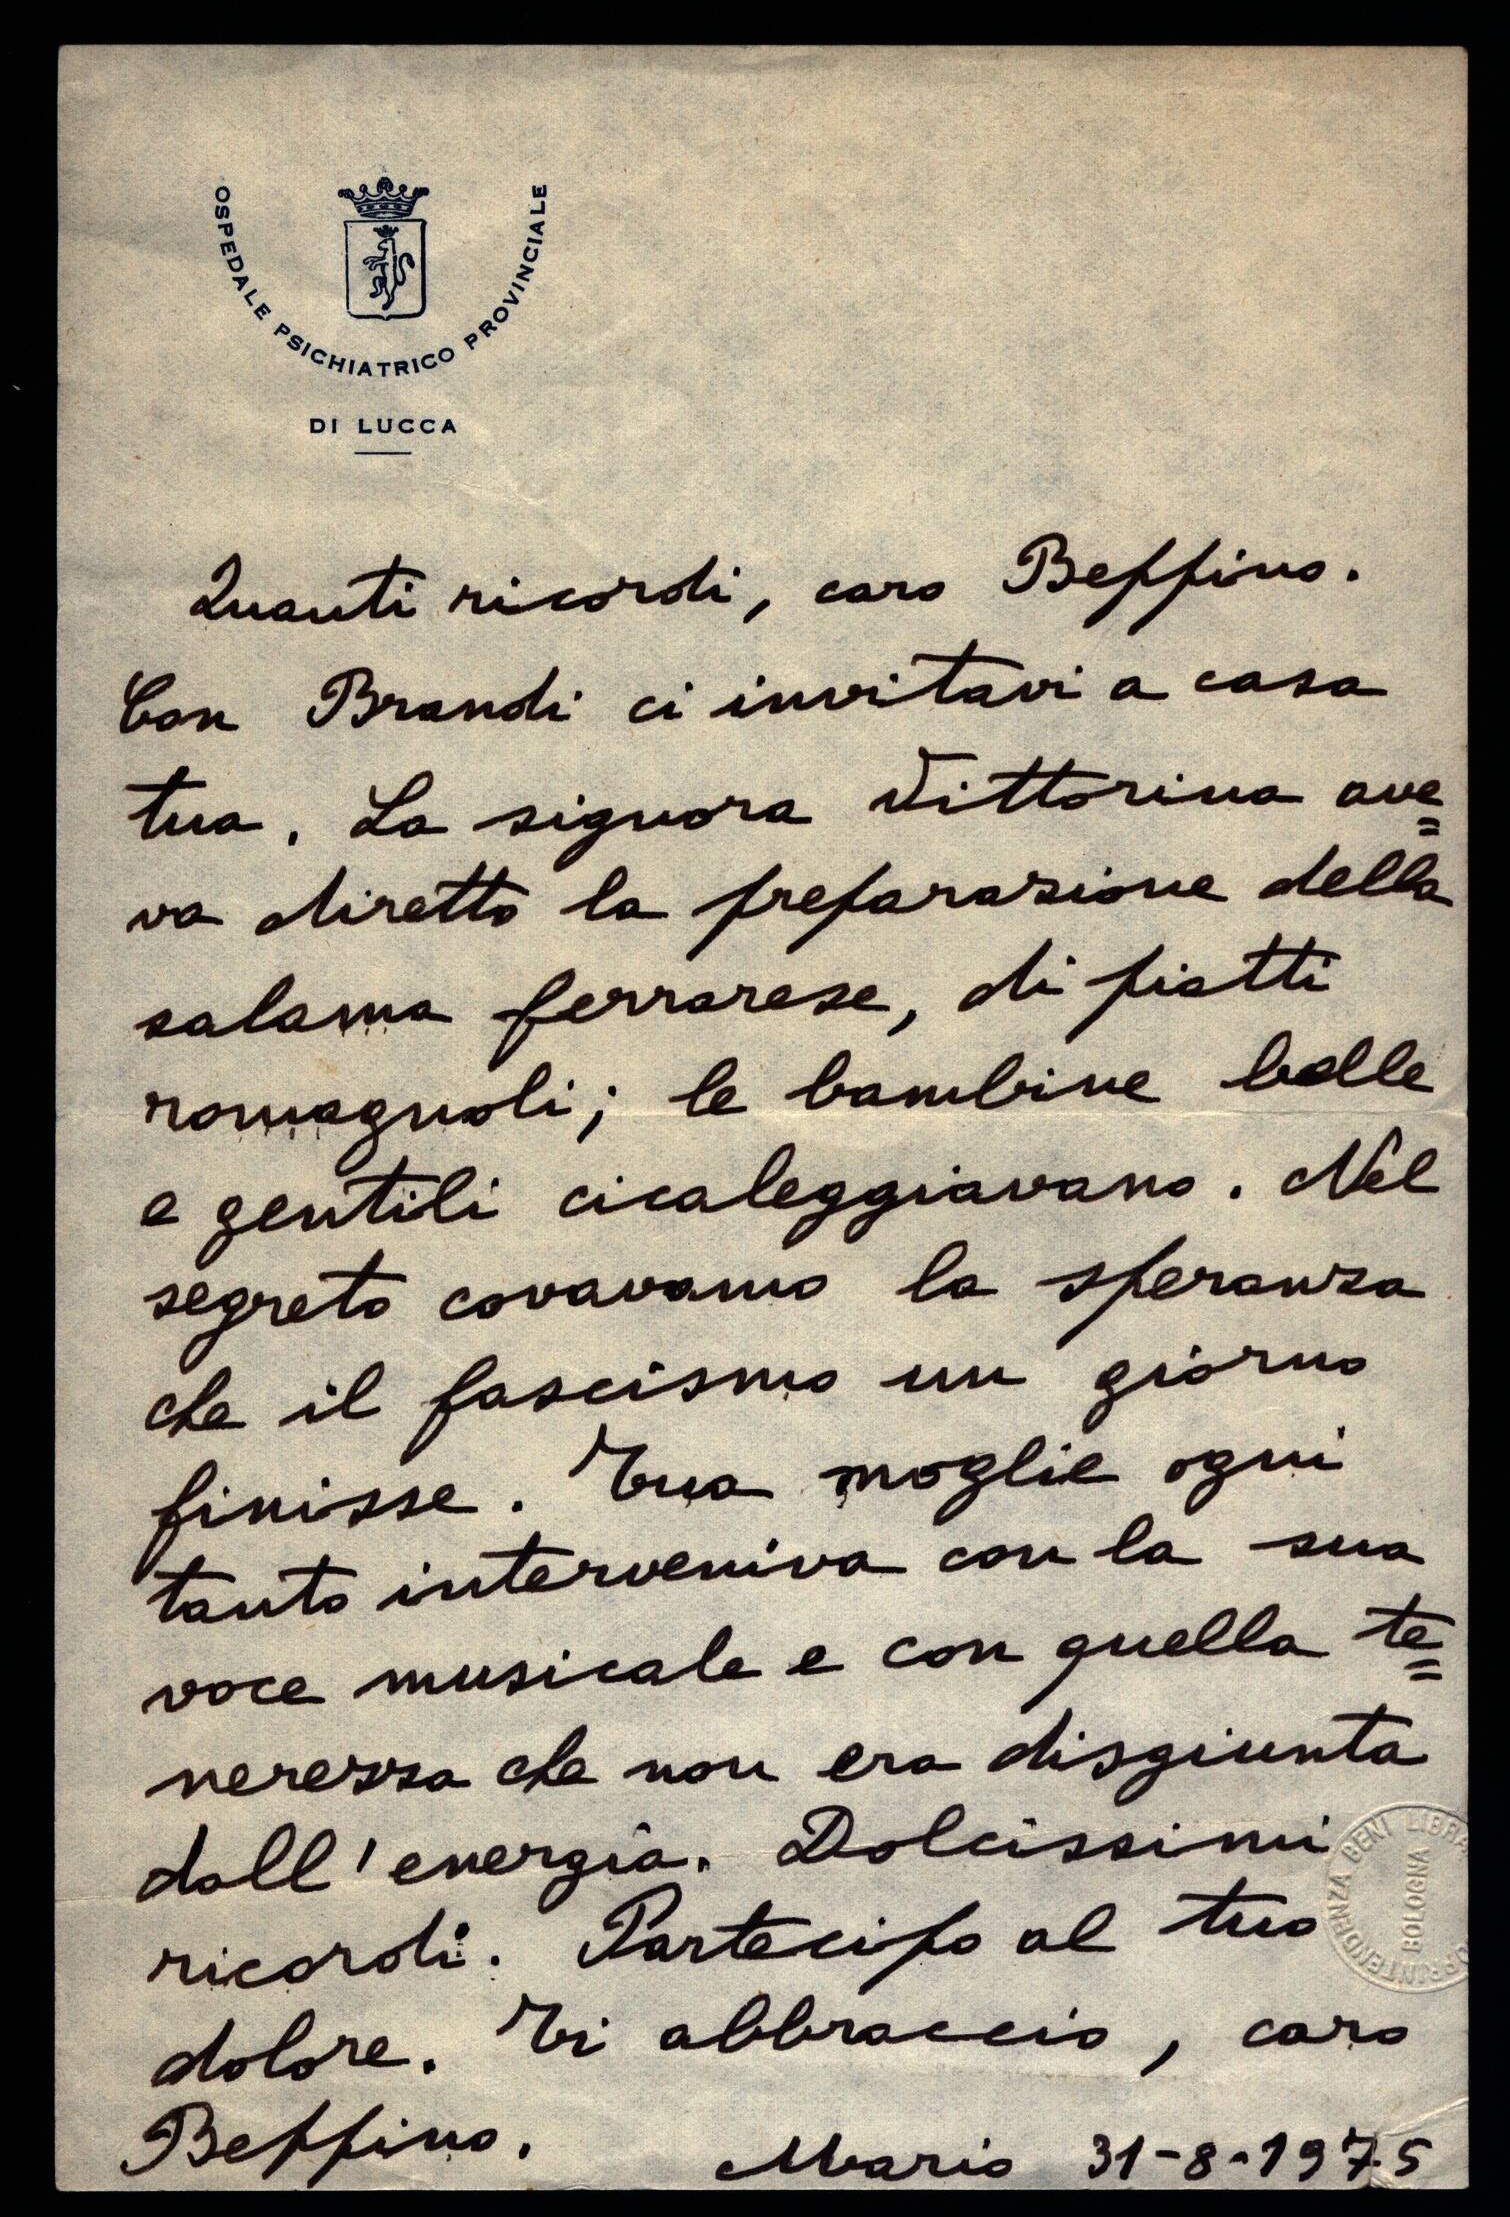 OSPEDALE PSICHIATRICO PROVINCIALE
DI LUCCA
Quanti ricordi, caro Beppino.
Con Brandi ci invitavi a casa
tua. La signora Vittorina ave=
va diretto la preparazione della
salama ferrarese, di piatti
romagnoli; le bambine belle
e gentili cicaleggiavano. Nel
segreto covavamo la speranza
che il fascismo un giorno
finisse. Tua moglie ogni
tanto interveniva con la sua
voce musicale e con quella te=
nerezza che non era disgiunta
dall'energia. Dolcissimi
ricordi. Partecipo al tuo
dolore. Ti abbraccio, caro
Beppino.
Mario 31-8-1975
SOPRINTENDENZA BENI LIBRA
BOLOGNA